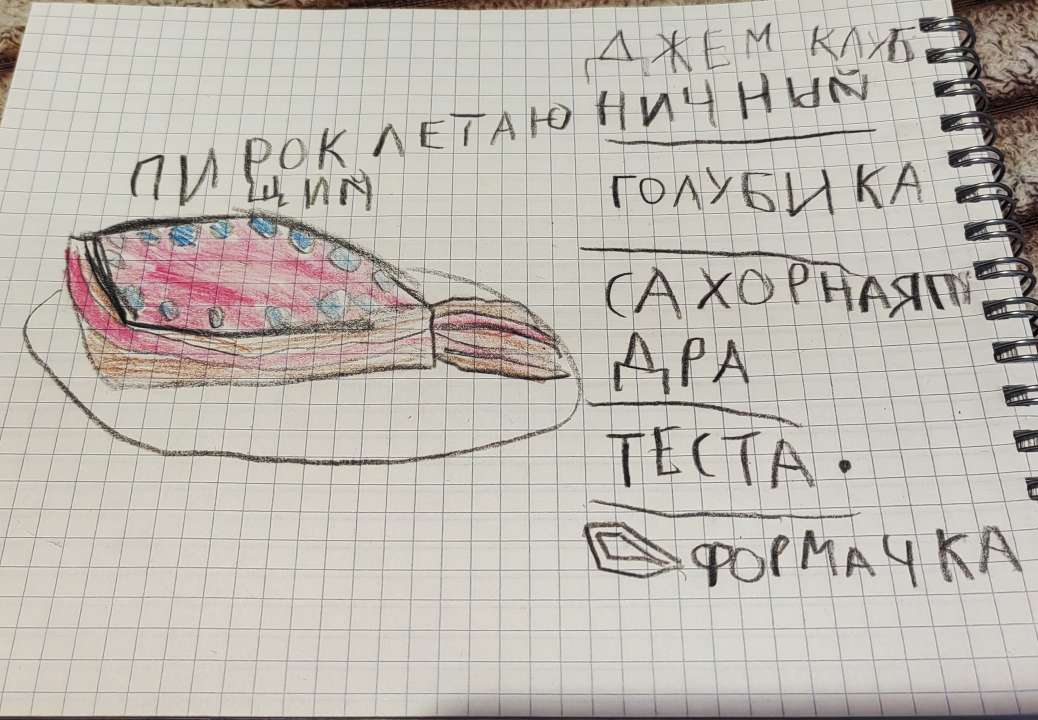 ПИРОК ЛЕТАЮ
ЩИЙ
ДЖЕМ КЛУБ
НИЧНЫЙ
ГОЛУБИКА
САХОРНАЯП
ДРА
ТЕСТА.
ФОРМАЧКА